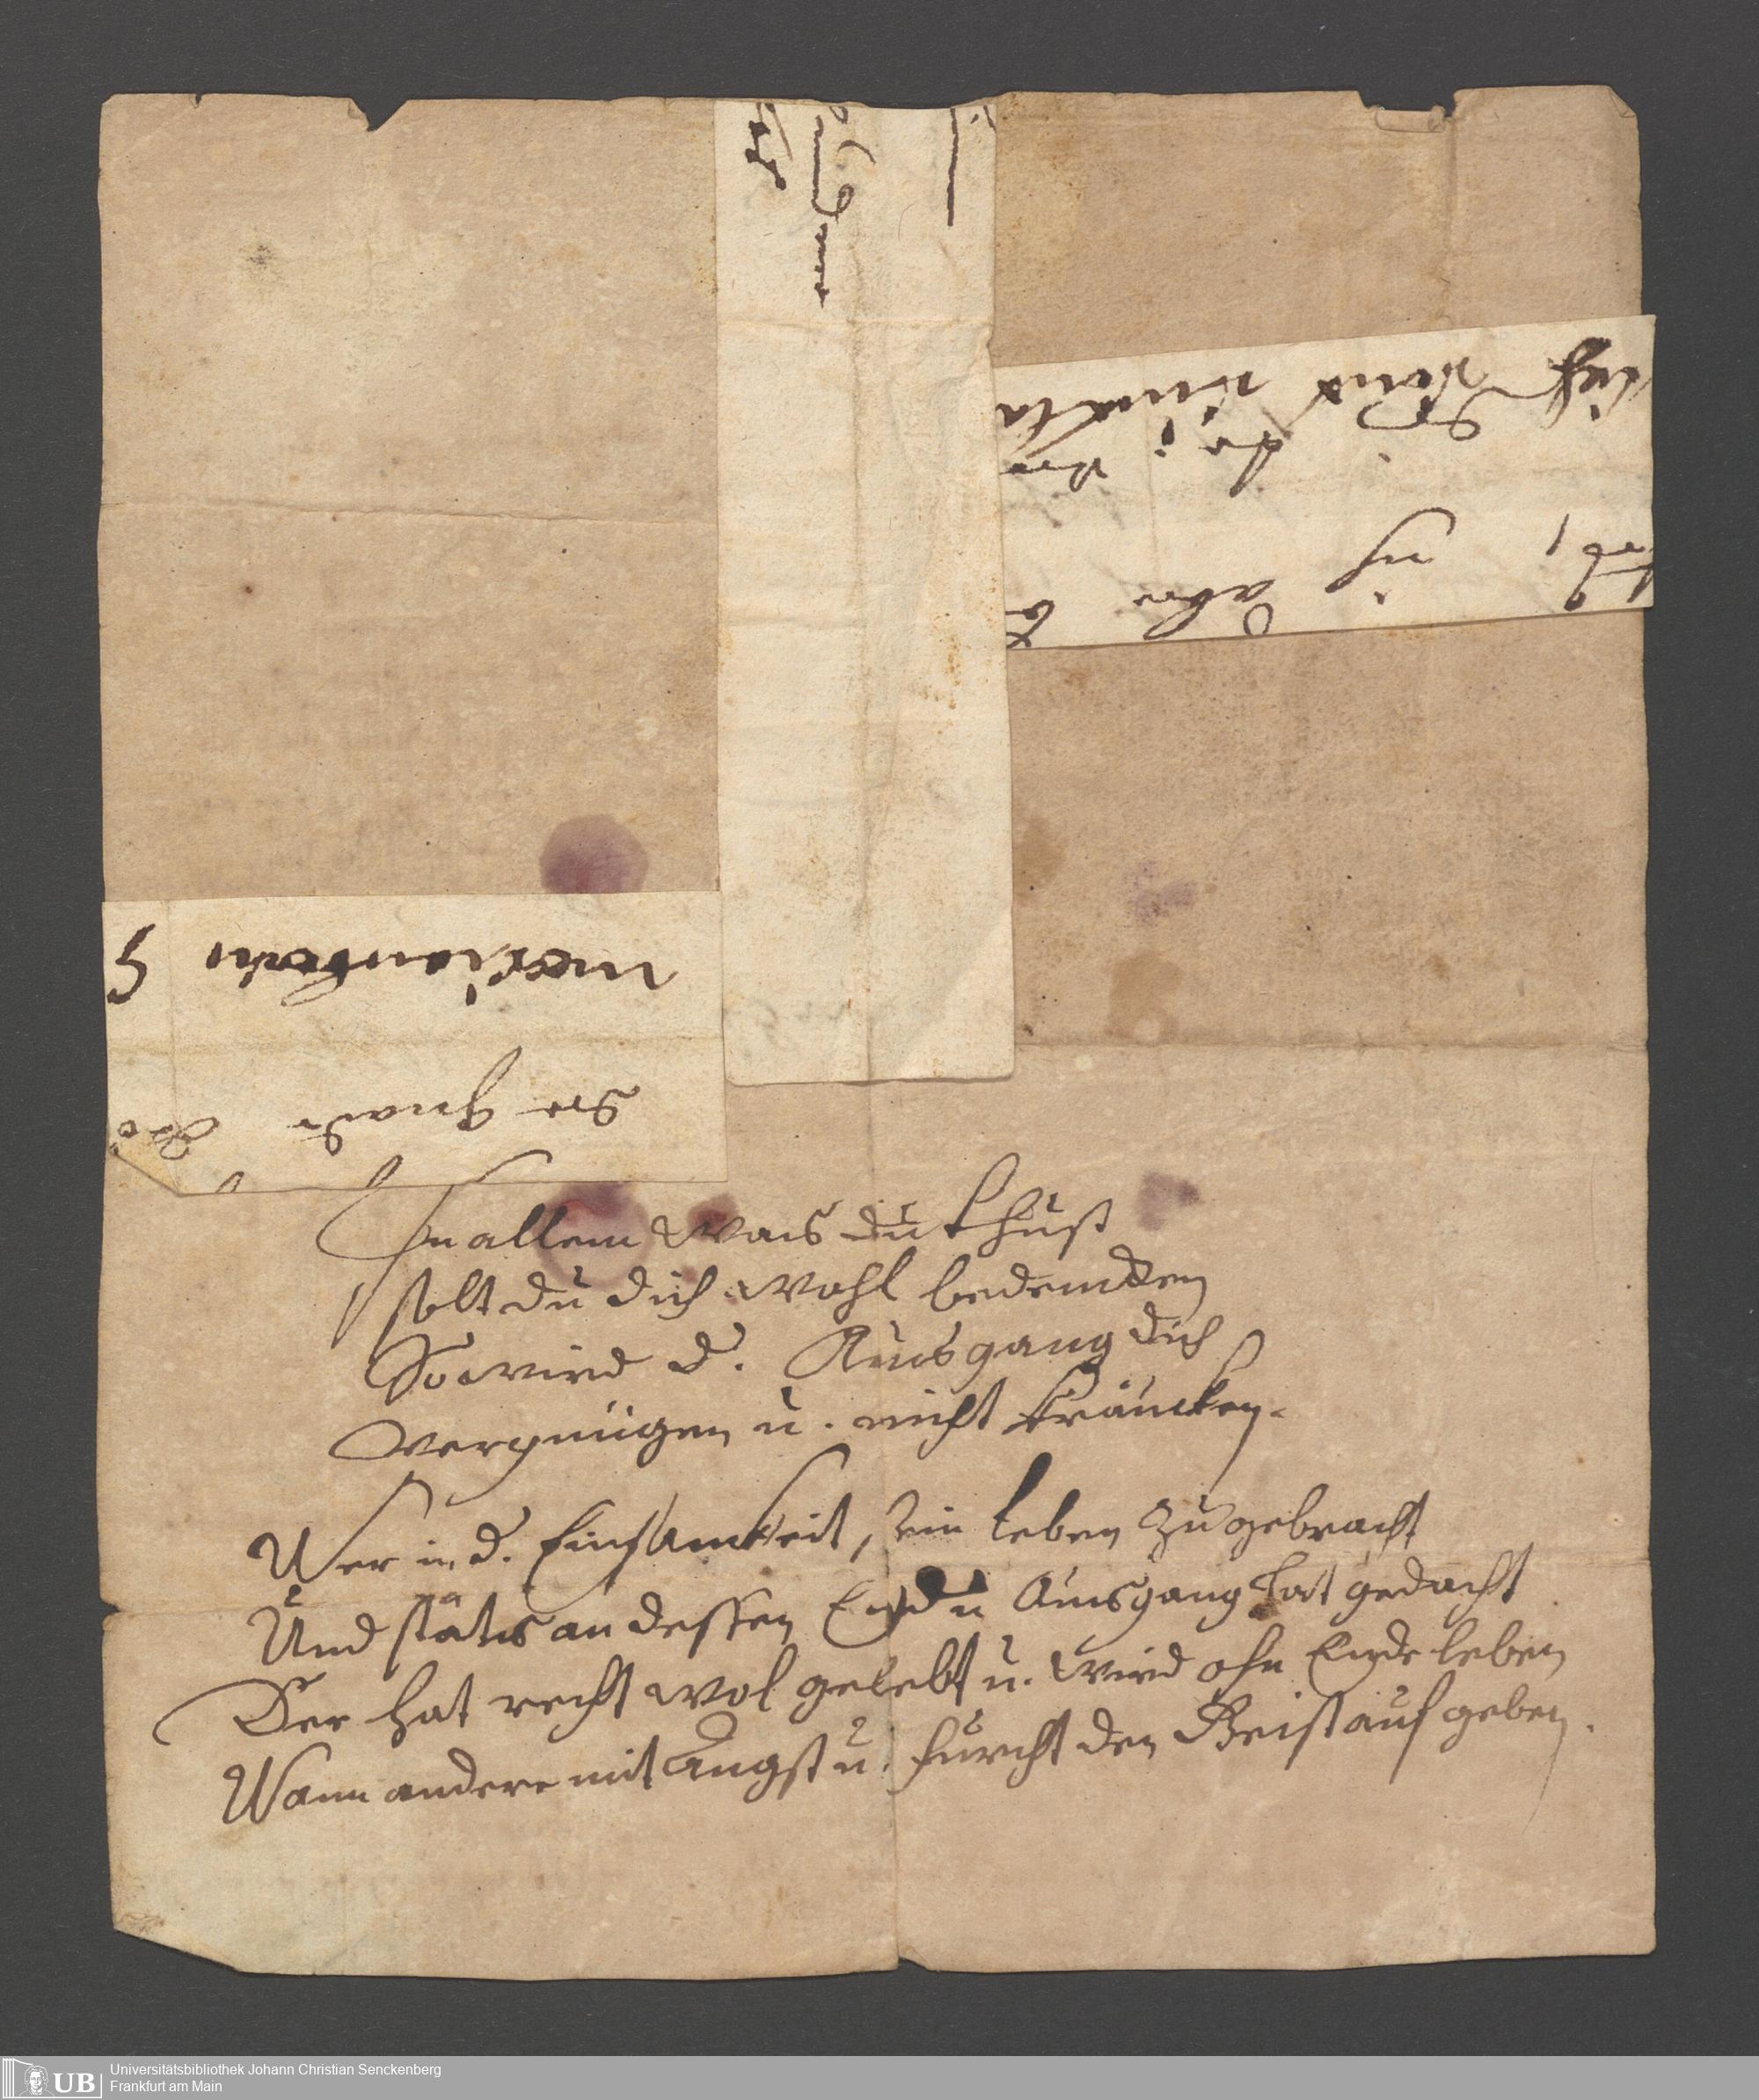 In allem was du thust
solt du dich wohl bedencken
So wird d. Ausgang dich
vergnügen u. nicht kräncken.
Wer in d. Einsamkeit, sein leben zu gebracht
Und stäts an dessen End u Ausgang hat gedacht
Der hat recht wol gelebt u. wird ohn Ende leben
Wann andere mit Angst u. furcht den Geist auf geben.
der Gnade
ich aber
UB
Universitätsbibliothek Johann Christian Senckenberg
Frankfurt am Main